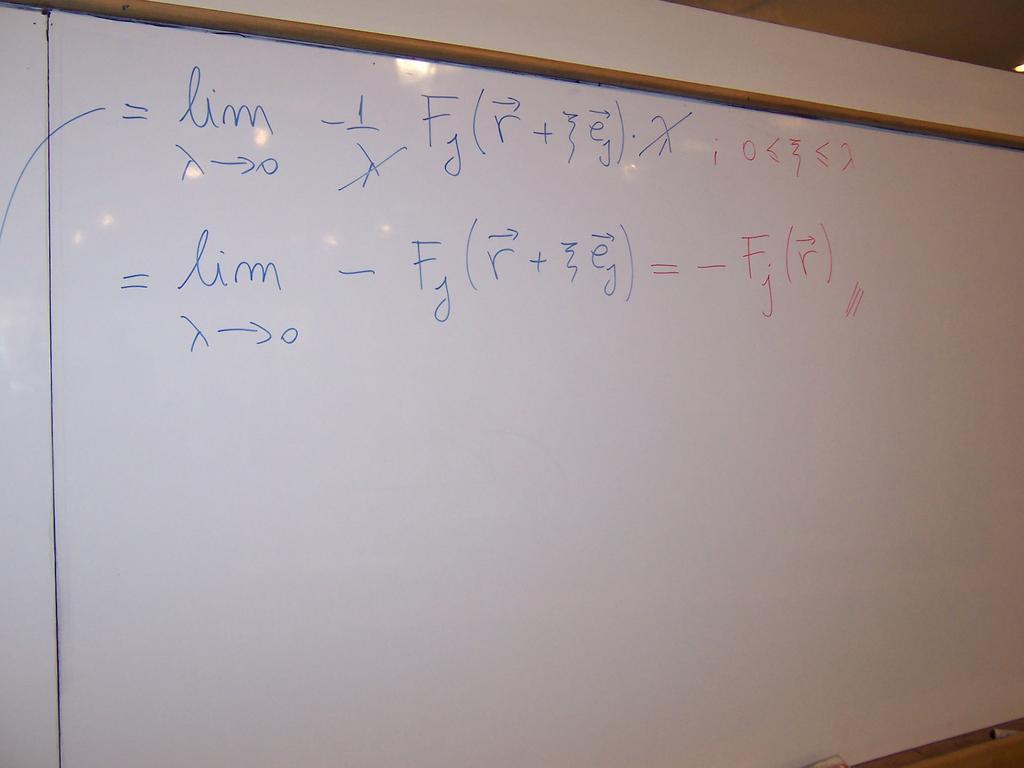 = lim λ→0 -1/λ F_j(r⃗ + ξ e⃗_j)·λ ; 0 ≤ ξ ≤ λ
= lim λ→0 - F_j(r⃗ + ξ e⃗_j) = - F_j(r⃗) //